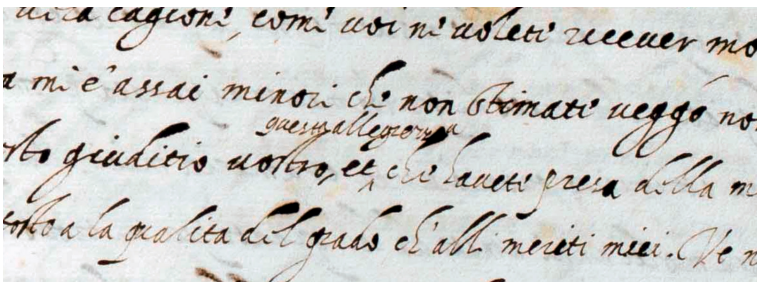 vera cagione, come voi ne volete ricever mo
a mi è assai minore che non stimate veggo no
questa allegrezza
sto giuditio vostro, et che havete presa della m
tosto a la qualita del grado ch'alli meriti miei. Ve n